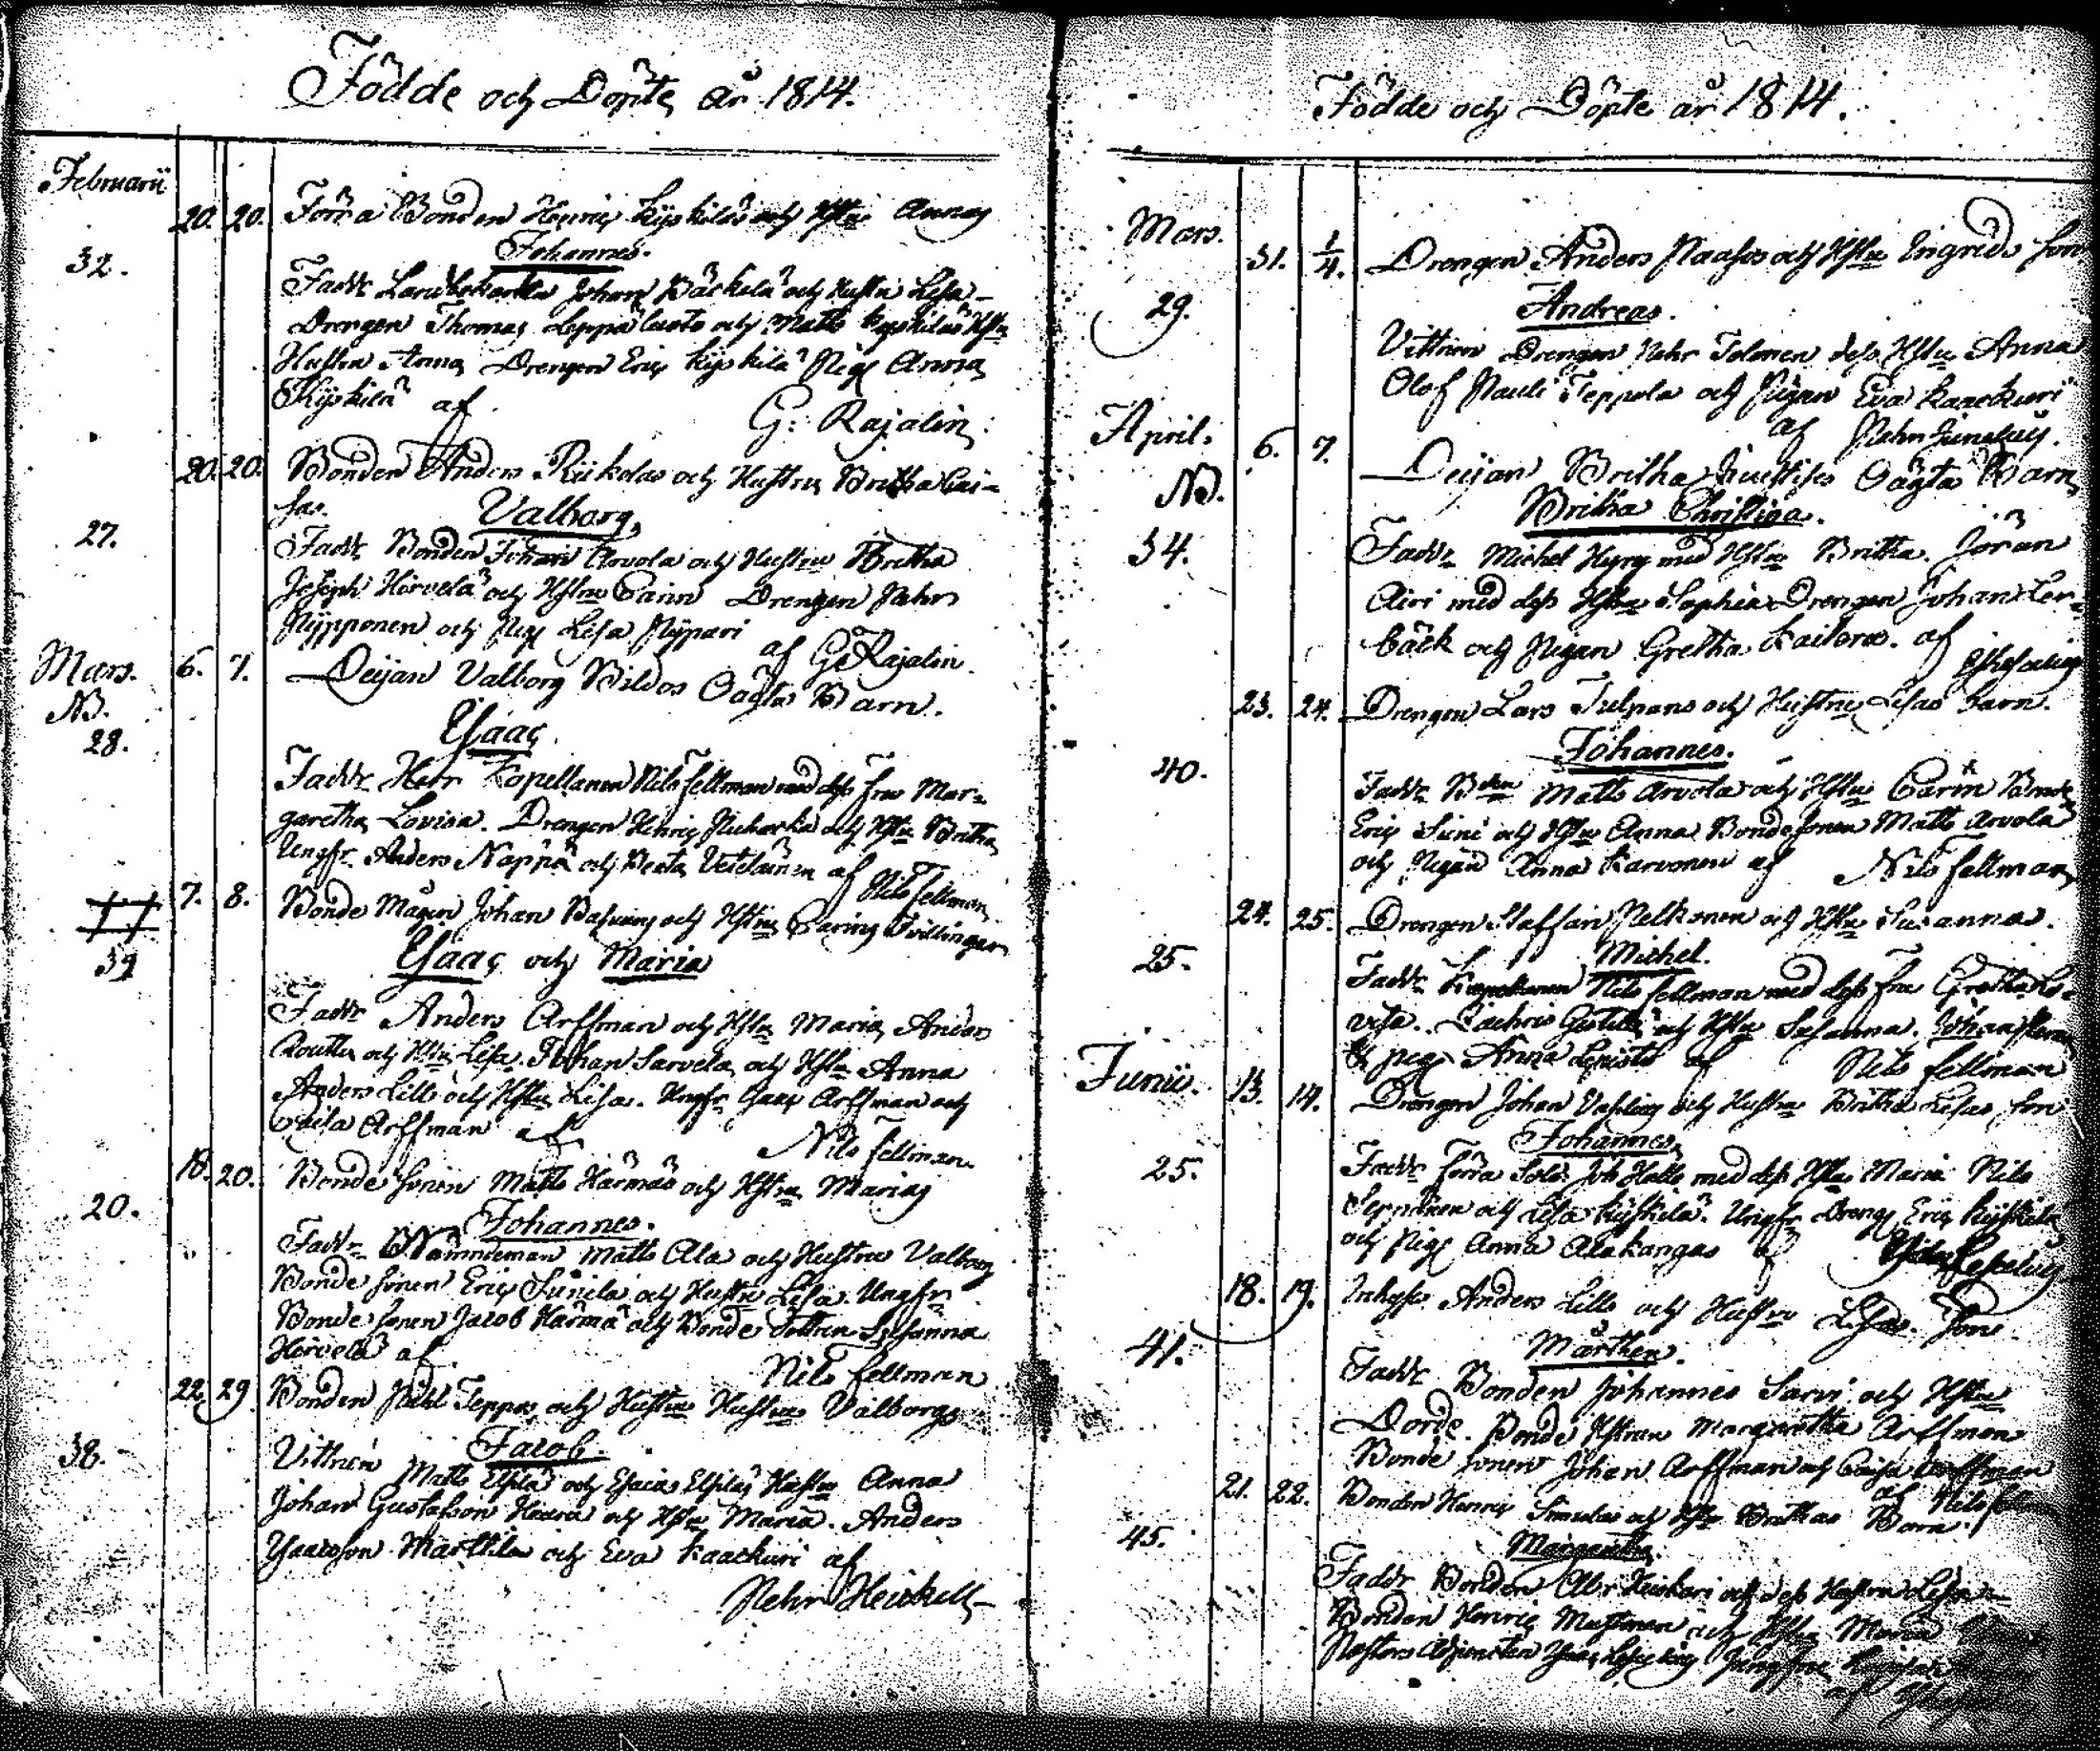 Födde och Döpte år 1814.
Februarii
20. 20. Förra Bonden Henric Kyskiläs och Hstru Annas
32. Johannes.
Faddr Johan och Hustru Lisa
Drengen Thomas Leppäluoto och Matts Kyskiläs Hstr
Hustru Anna Drengen Eric Kyskilä Pig Anna
Kyskilä af G: Rajalin.
20. 20. Bonden Anders Riikolas och Hustru Britha Cai=
sas. Valborg.
27. Faddr Bonden Johan Arvola och Hustru Britha
Joseph Hirvelä och Hstru Carin Drengen Pehr
Nypponen och Pig Lisa af G Rajalin.
Mars. 6. 7. Deijan Valborg Oägta Barn.
NB. Esaac.
28.
Faddr Herr Capellanen Nils Fellman med dess fru Mar=
garetha Lovisa. Drengen Henric och Hstru Britha
Ungfr. Anders Nappa och Beata af Nils Fellman
7. 8. Bonde Mågen Johan och Hstru Carins Tvillingar
39 Esaac och Maria
Faddr Anders Arffman och Hstru Maria, Anders
Routtu och Hstru Lisa. Johan Sarvela och Hstru Anna
Anders Lillo och Hstru Lisa. Ungfr Esaac Arffman och
Caisa Arffman af Nils Fellman.
18. 20. Bonde sonen Matts Härmäs och Hstru Marias
20. Johannes.
Faddr Nämndeman Matts Ala och Hustru Valborg
Bonde sonen Eric Simila och Hustru Lisa. Ungfr
Bonde sonen Jacob Härmä och Bonde dottren Susanna
Hirvelä af Nils Fellman
22. 29. Bonden Påhl Teppos och Hustru Hustrus Valborgs
38. Jacob.
Vittnen Matts Elfilä och Esaias Elfiläs Hustru Anna
Johan Gustafsson och Hstru Maria. Anders
Isaacsson Marttila och Eva Kaackuri af
Pehr Heickell
Födde och Döpte år 1814.
Mars. 31. 1/4. Drengen Anders Paasos och Hstru Ingrids son
29. Andreas.
Vittnen Drengen Pehr Tolonen dess Hstru Anna
Olof Pauli Teppola och Pigan Eva Kaackuri
af Pehr
April. 6. 7. Deijan Britha Oägta Barn
NB. Britha Christina.
34. Faddr Michel Hyry med Hstru Britha. Jöran
Airi med dess Hstru Sophia Drengen Johan Ler=
bäck och Pigan Gretha Kaitera. af
23. 24. Drengen Lars Tulpans och Hustru Lisas barn.
Johannes.
40. Faddr Bden Matts Arvola och Hstru Carin Bonde
Eric Siini och Hstru Anna Bonde sonen Matts Arvola
och Pigan Anna Karvonen af Nils Fellman
24. 25. Drengen Staffan Pelkonen och Hstru Susannas.
25. Michel.
Faddr Capellanen Nils Fellman med dess fru Gretha Lo=
visa. Zachris och Hstru Susanna. Johan
& pig Anna Lepistö af Nils Fellman
Junii. 13. 14. Drengen Johan och Hustru Britha Lisas son
Johannes.
25. Faddr förra Sold. Joh Halls med dess Hstru Maria Nils
Seppänen och Lisa Kyskilä. Ungfr Dreng Eric Kyskilä
och Pig Anna Alakangas af
18. 19. Inhyses Anders Lillo och Hustru Lisas. Son.
41. Mårthen.
Faddr Bonden Johannes Sarvi och Hstru
Dorde. Bonde Hstrun Margaretha Arffman
Bonde sonen Johan Arffman och Caisa Arffman
af Nils Fellman
21. 22. Bonden Henric Simulas och Hstr Brithas Barn.
45. Margareta.
Faddr Bonden Abr och dess Hustru Lisa
Bonden Henric och Hstru Maria
Pastors Adjuncten Jungfru